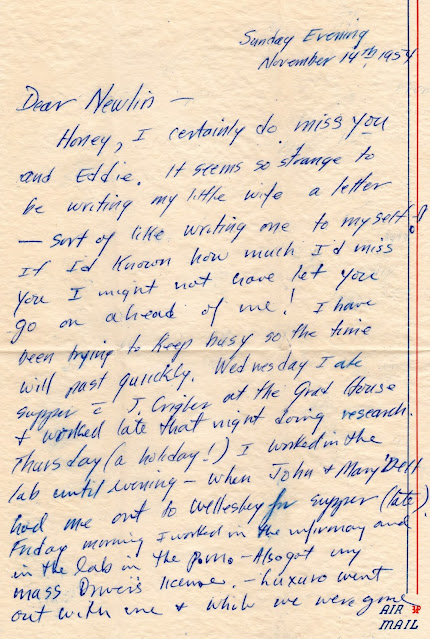 Sunday Evening
November 14th 1954
Dear Newlin —
Honey, I certainly do miss you
and Eddie. It seems so strange to
be writing my little wife a letter
— sort of like writing one to myself!
If I'd known how much I'd miss
you I might not have let you
go on ahead of me! I have
been trying to keep busy so the time
will past quickly. Wednesday I ate
supper c̄ J. Crigler at the Grad House
& worked late that night doing research.
Thursday (a holiday!) I worked in the
lab until evening — when John & Mary Dell
had me out to Wellesley for supper (late).
Friday morning I worked in the infirmary and
in the lab in the p.m. — Also got my
mass Driver's license. — went
out with me & while we were gone
AIR
MAIL